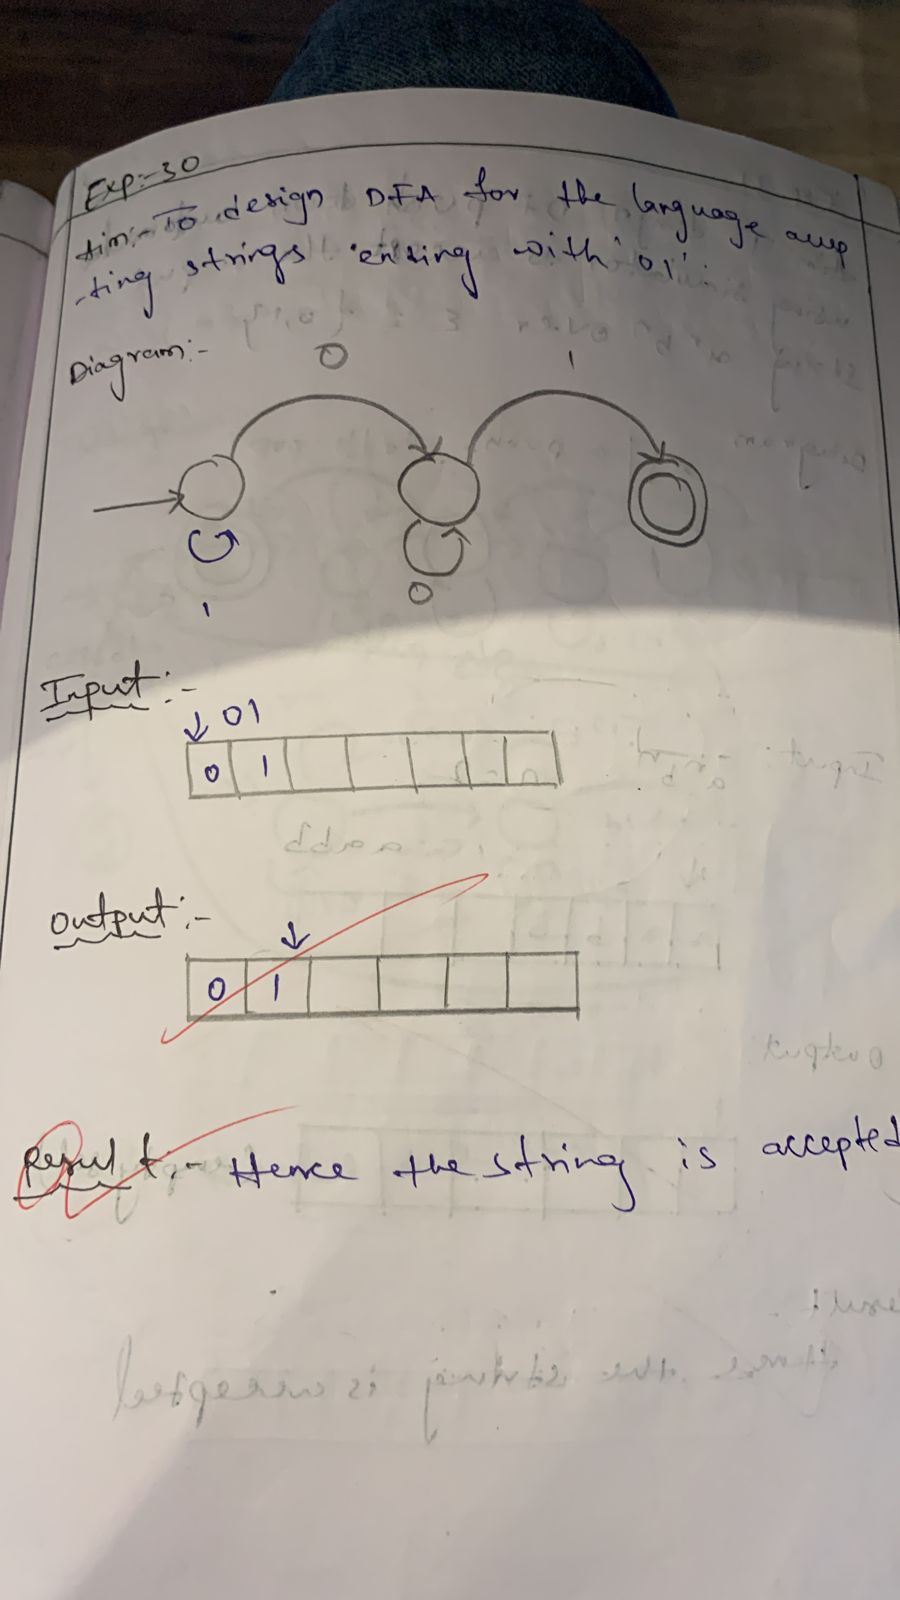 Exp:-30
Aim:- To design DFA for the language accep
-ting strings 'ending with '01'.
Diagram:-
0 1
1 0
Input:-
01
0 1
Output:-
0 1
Result:- Hence the string is accepted